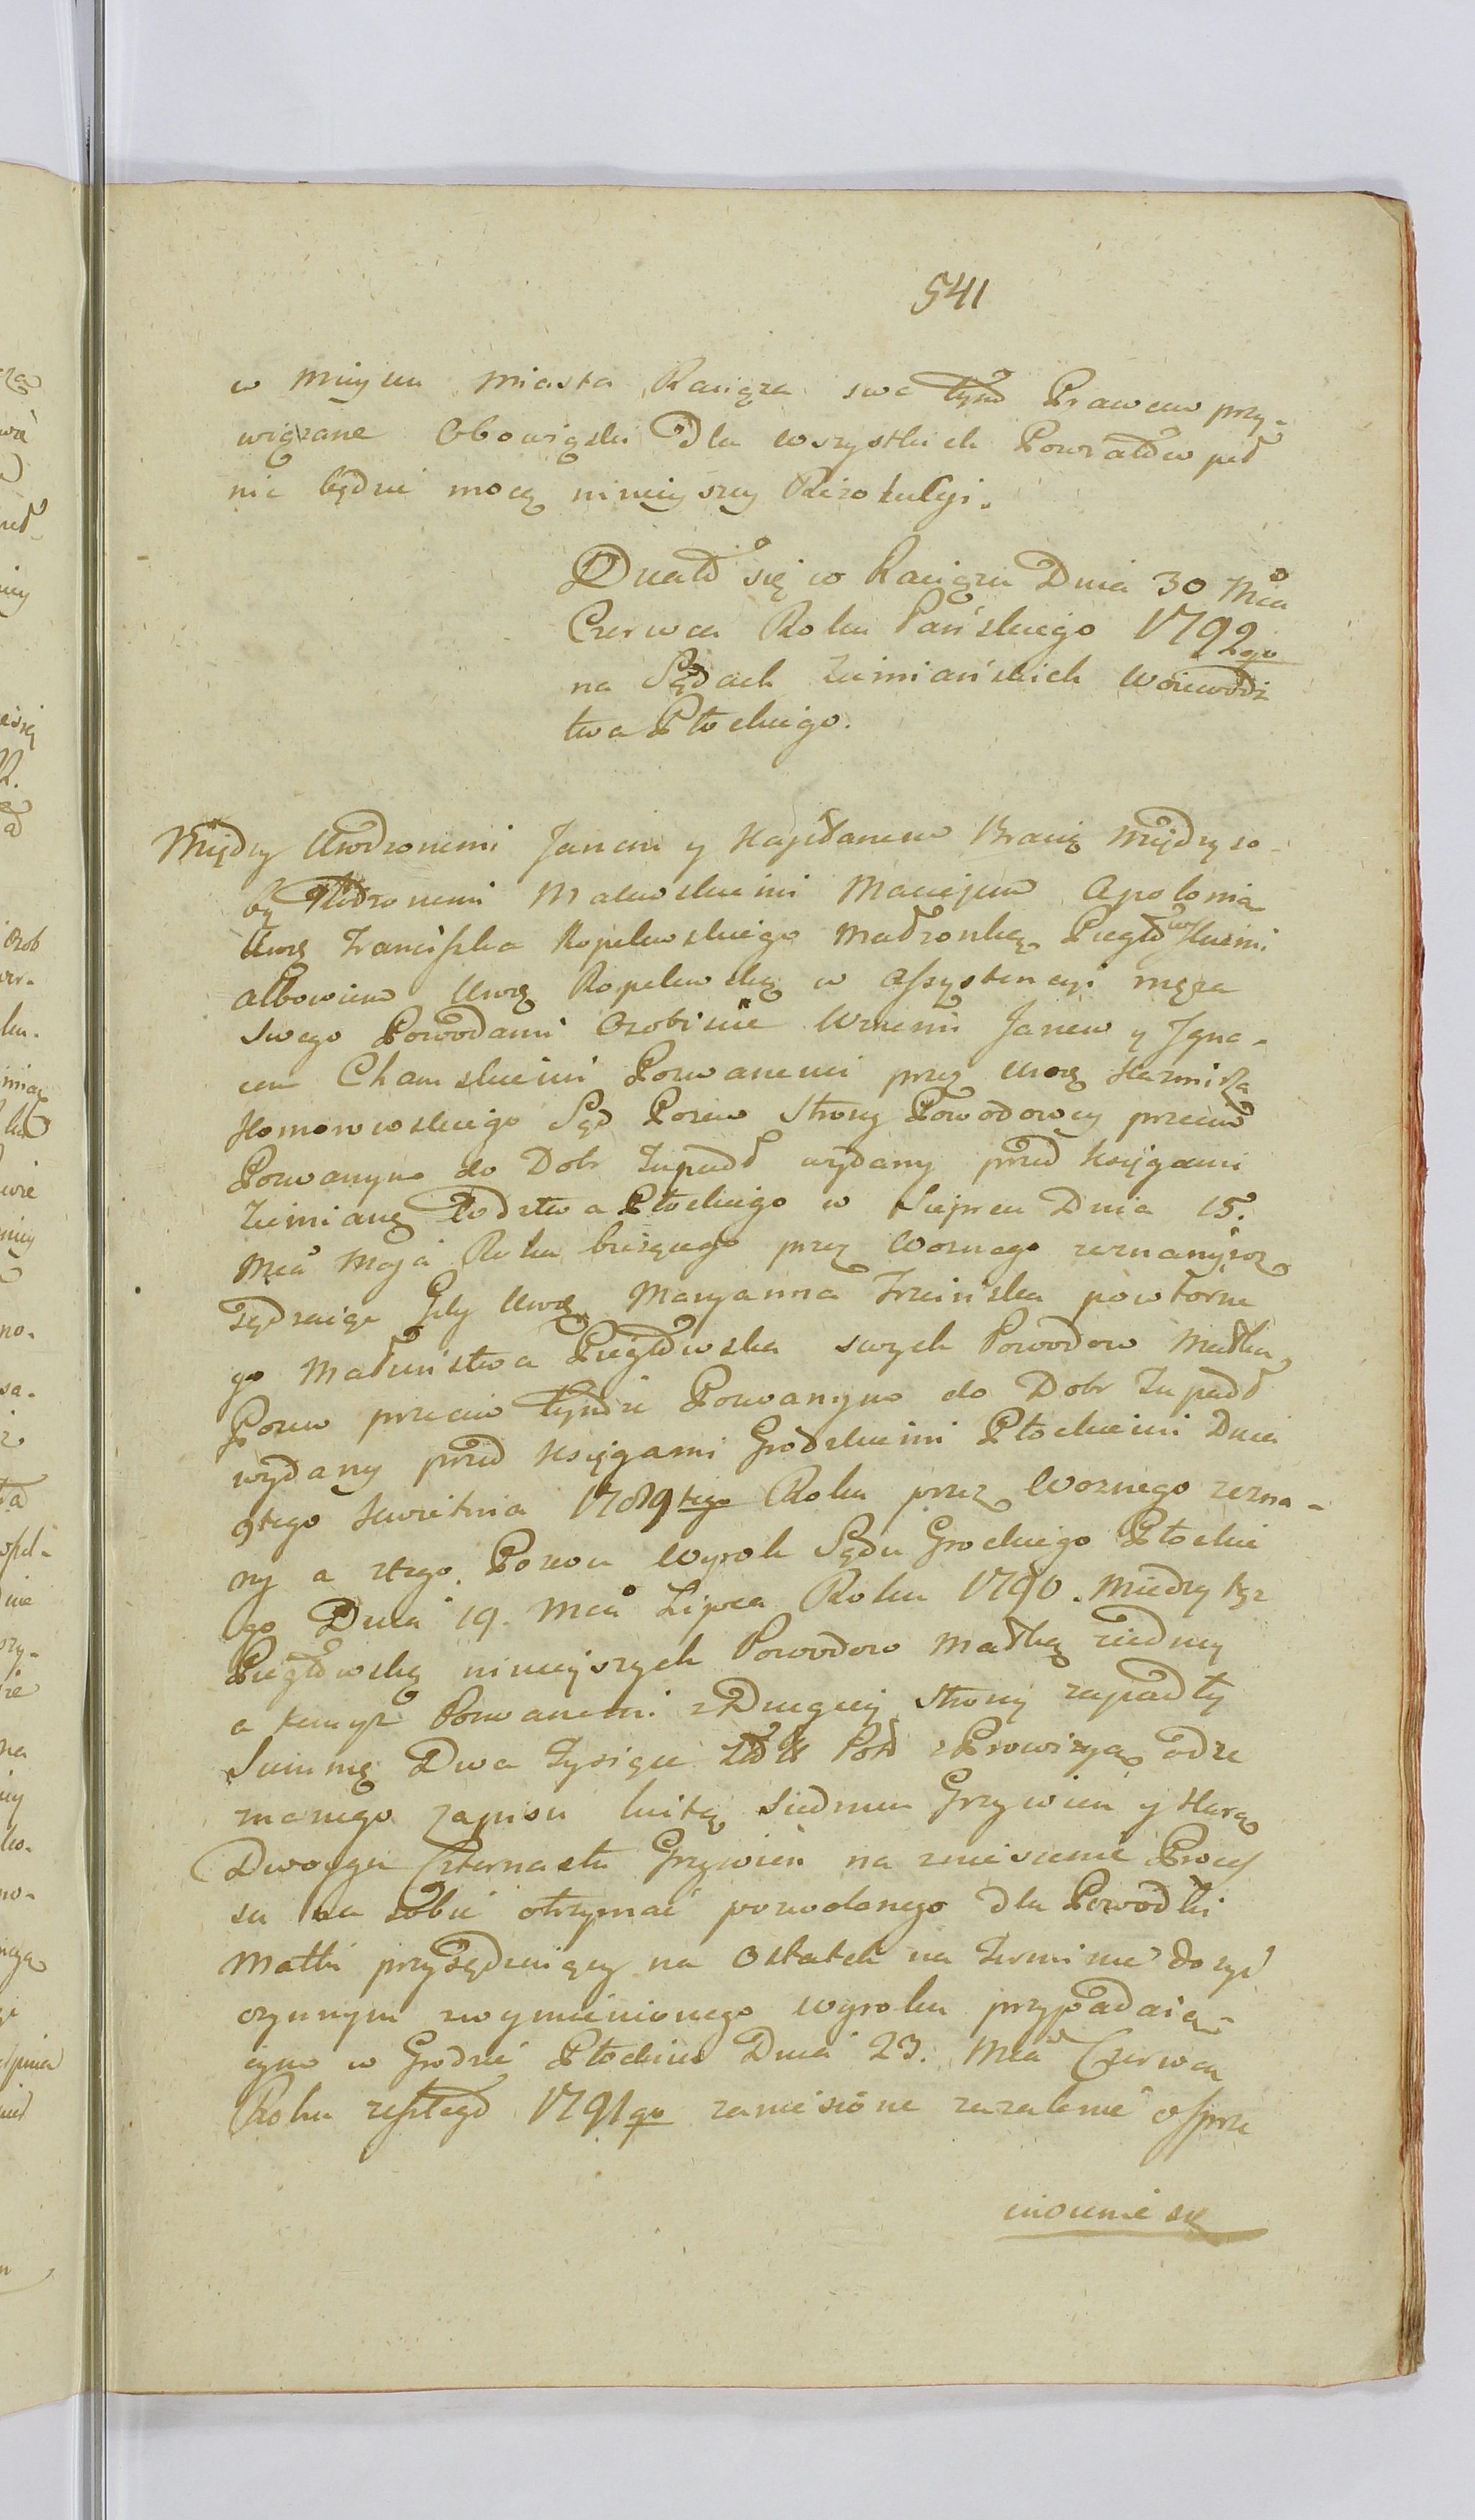 541
w mieyscu Miasta Raciąża swe tymże Prawem przy-
wiązane Obowiązki dla wszystkich Powiatów peł
nić będzie mocą ninieyszey Rezolucyi.
Działo się w Raciążu Dnia 30 Mca
Czerwca Roku Pańskiego 1792go
na Sądach Ziemiańskich Woiewodz
twa Płockiego.
Między Urodzonemi Janem y Kajetanem Bracią między so-
bą Rodzonemi Malewskiemi Maciejem Apolonią
Urwą Franciszka Kopulewskiego Małżonką Piegłowskiemi
albowiem Urwą Kopulewską w Assystencyi męża
swego Powodami Osobiście Urnemi Janem y Igna-
cem Chamskiemi Pozwanemi przez Urwę Kazmirza
Komorowskiego Sąd Pozew Strony Powodowey przeciw
Pozwanym do Dobr Zupadł wydany przed Księgami
Ziemiańs Wodztwa Płockiego w Sierpcu Dnia 15.
Mca Maja Roku bieżącego przez Woznego zeznany roz
sądzaiąc Gdy Urwą Maryanna Trzcińska powtórne
go Małżeństwa Piegłowska swych Powodow Matka
Pozew przeciw tymże Pozwanym do Dobr Zupadł
wydany przed Księgami Grodzkiemi Płockiemi Dnia
9tego Kwietnia 1789tego Roku przez Woznego zezna-
ny a ztego Pozwu Wyrok Sądu Grodzkiego Płockie
go Dnia 19. Mca Lipca Roku 1790. między tęż
Piegłowską ninieyszych Powodow Matką ziedney
a temyż Pozwanemi z Drugiey Strony zapadły
Summę Dwa Tysiące Zło Pols z Prowizyą odze
znanego zapisu luitą siedmiu Grzywien y Karą
Dwoygu Czternastu Grzywien na zniesienie Proces
su na sobie otrzymać pozwolonego dla Powodki
Matki przysądzaiący na Ostatek na Terminie dosyć
czynnym zwymienionego wyroku przypadaią-
cym w Grodzie Płockim Dnia 23. Mca Czerwca
Roku zeszłego 1791go zaniesione zażalenie o sprze
ciwienie się